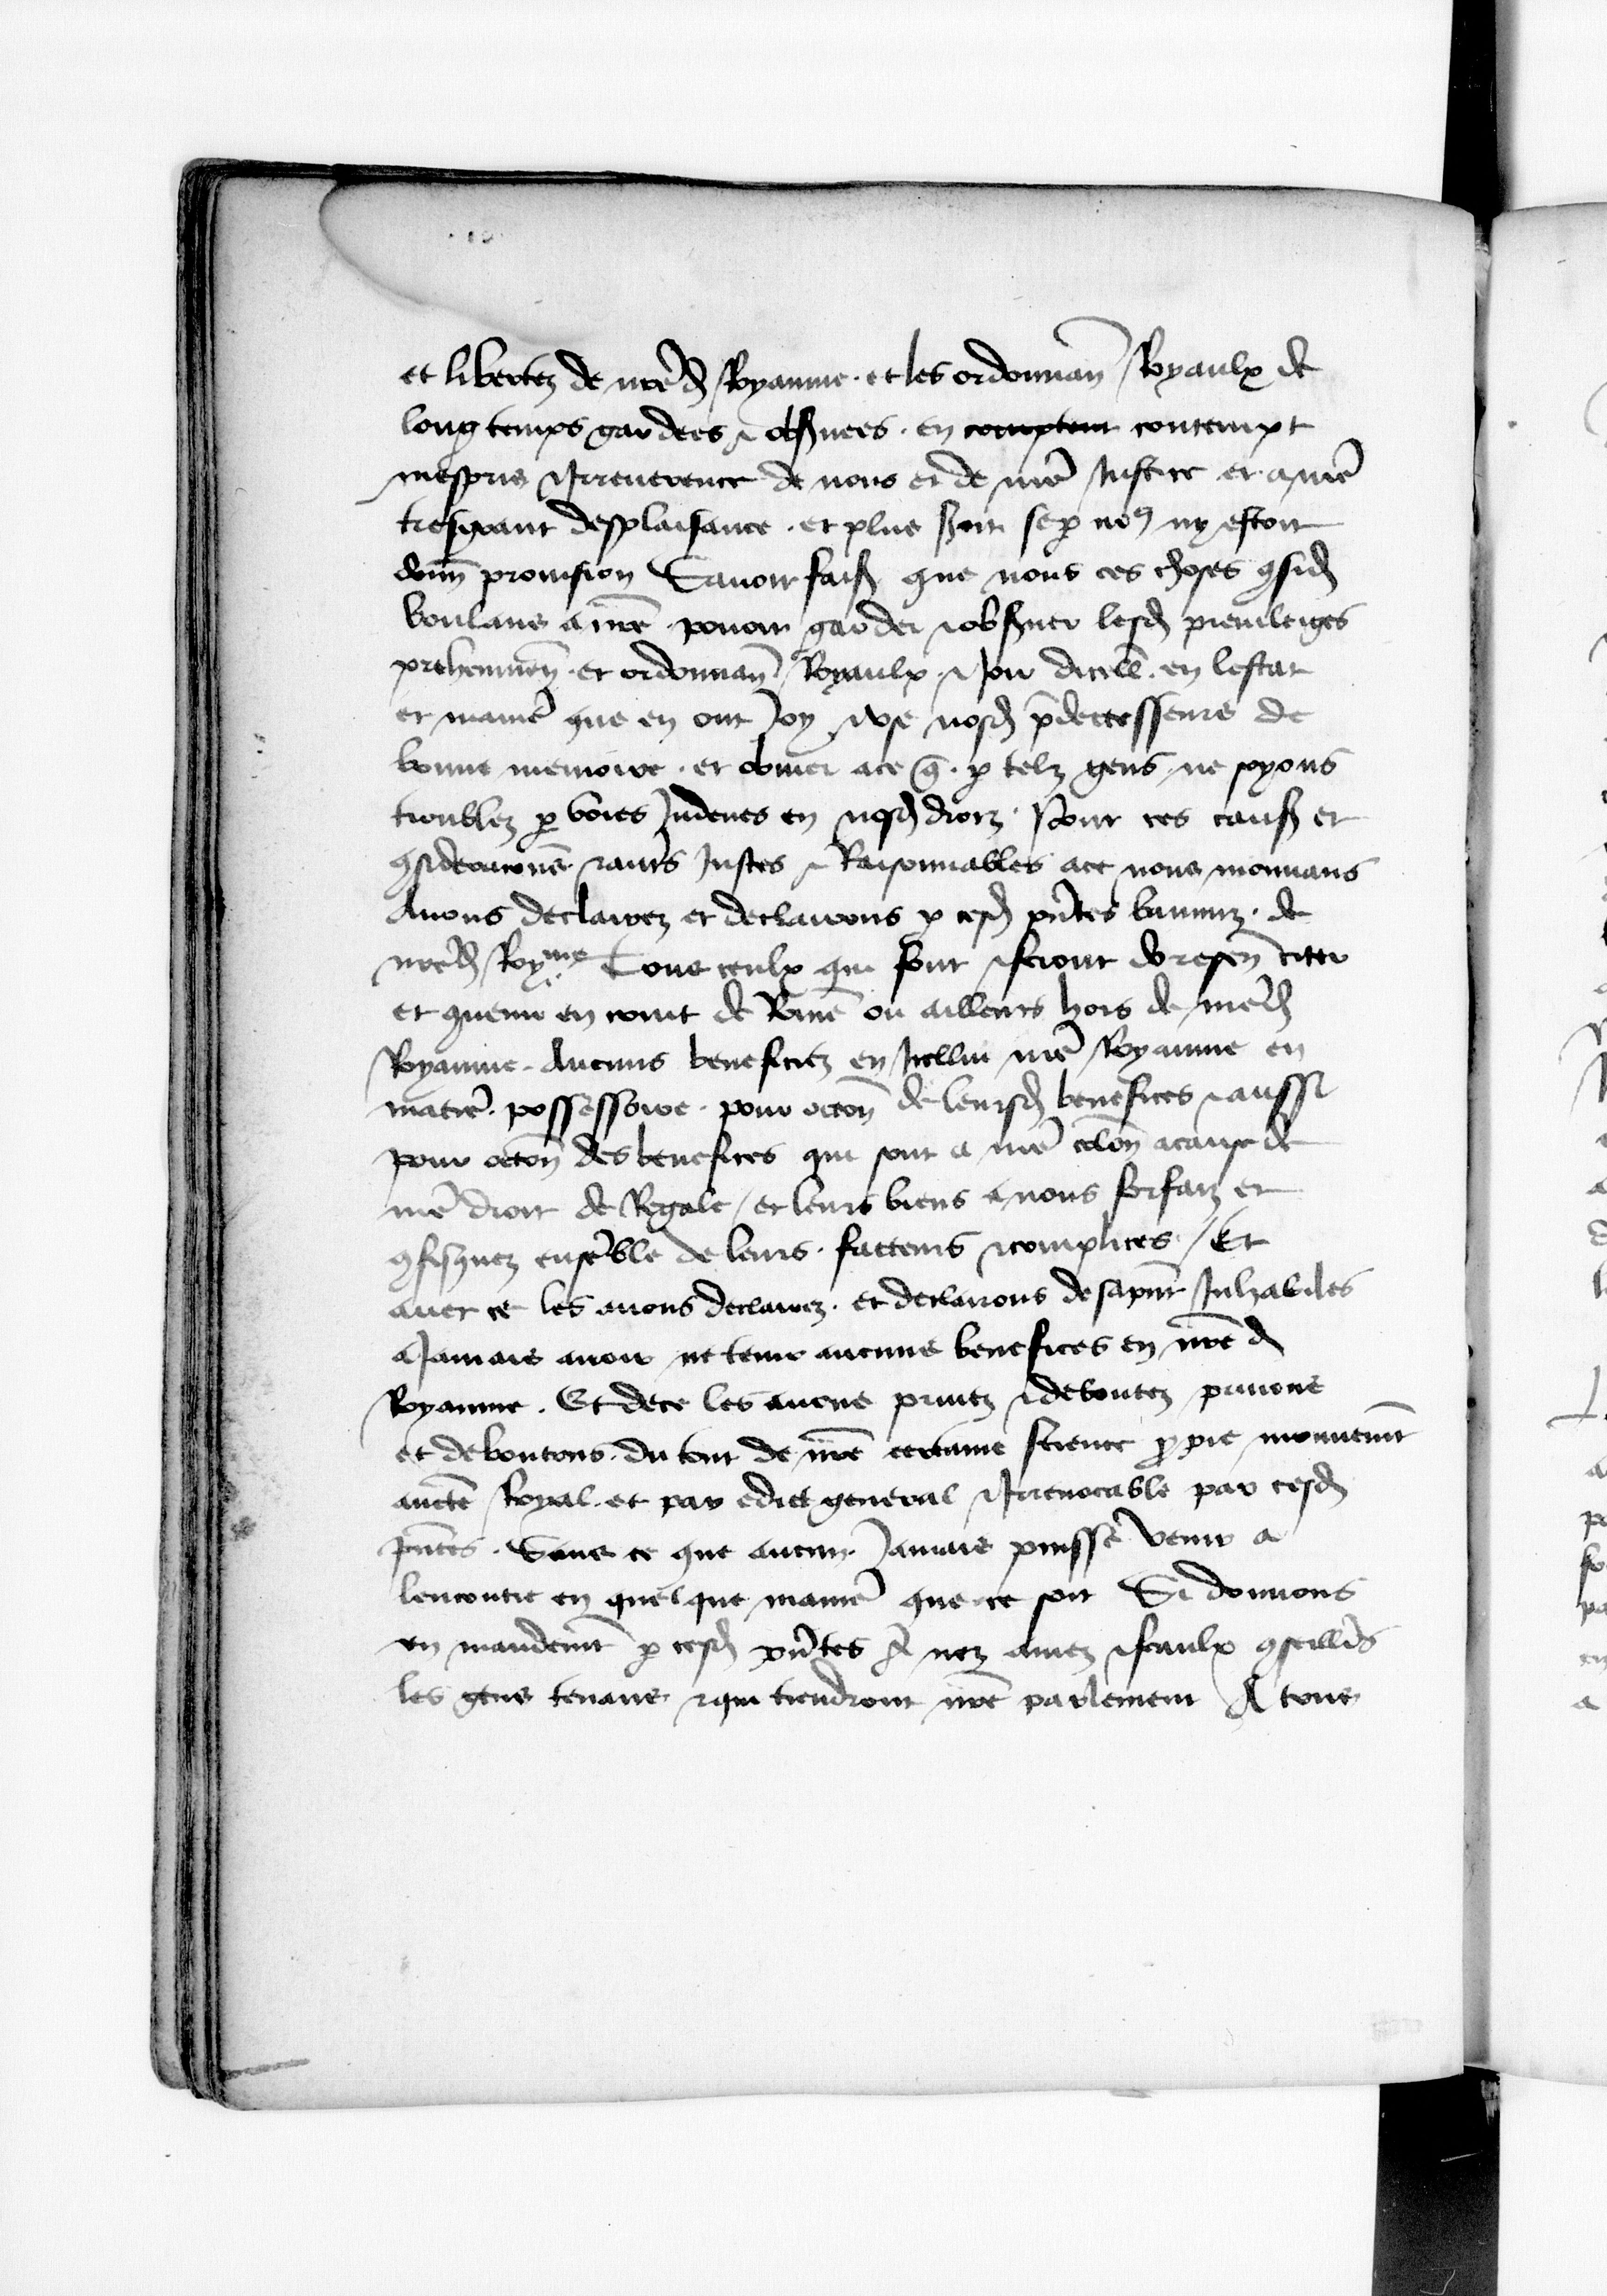 et libertez de nr̃ed Royaume . et les ordonnan̄ Royaulx de
long temps gardees & obſuees . en comptent contempt
mespris Irreuerence de nous et de nr̃e Justice et a nr̃e
tresgrant desplaisance . et plus seroit se p nos ny estoit
donn̄ prouision Sauoir faiſ que nous ces choses ꝯsid
voulans a nr̃e pouoir garder & obſuer lesd priuileiges
preheminen̄ . et ordonnan̄ Royaulx & Joir dicell̄ . en lestat
et manier̄ que en ont Joy & vse nosd p̄decesseurs de
bonne memoire . et obuier ace q̄ . p telz gens ne soyons
troublez p voies Indeues en nosd droiz . Pour ces cauſ et
ꝯsideracions & autr̃s Justes & Raisonnables ace nous mouuans
Auons declairez et declairons p cesd pñtes banniz . de
nr̃ed Royme Tous ceulx qui font & feront doresen̄ citer
et ꝯuenir en court de Rom̃e ou ailleurs hors de nr̃ed
Royaume . Aucuns beneficiez en Icellui nr̃e Royaume en
matier̃ . possessoire . pour occon̄ de leursd benefices & aussi
pour occon̄ des benefices qui sont a nr̃e colon̄ acause de
nr̃e droit de Regale / et leurs biens a nous forfaiz et
ꝯfisquez ensẽble de leurs . facteurs & complices / Et
auec ce les auons declairez . et declairons desapñt Inhabiles
a Jamais auoir ne tenir aucuns benefices en nr̃e d
Royaume . Et dece les auons priuez & deboutez priuons
et deboutons . du tout de nr̃e certaine science ppre mouuemñt
aucte Royal . et par edict general & Irreuocable par cesd
pñtes . Sans ce que aucun Jamais puisse venir a
lencontre en quelque manier̃ que ce soit Si donnons
en mandemñt p cesd pñtes A noz amez & feaulx ꝯseilliers
les gens tenans & qui tiendront nr̃e parlement A tous